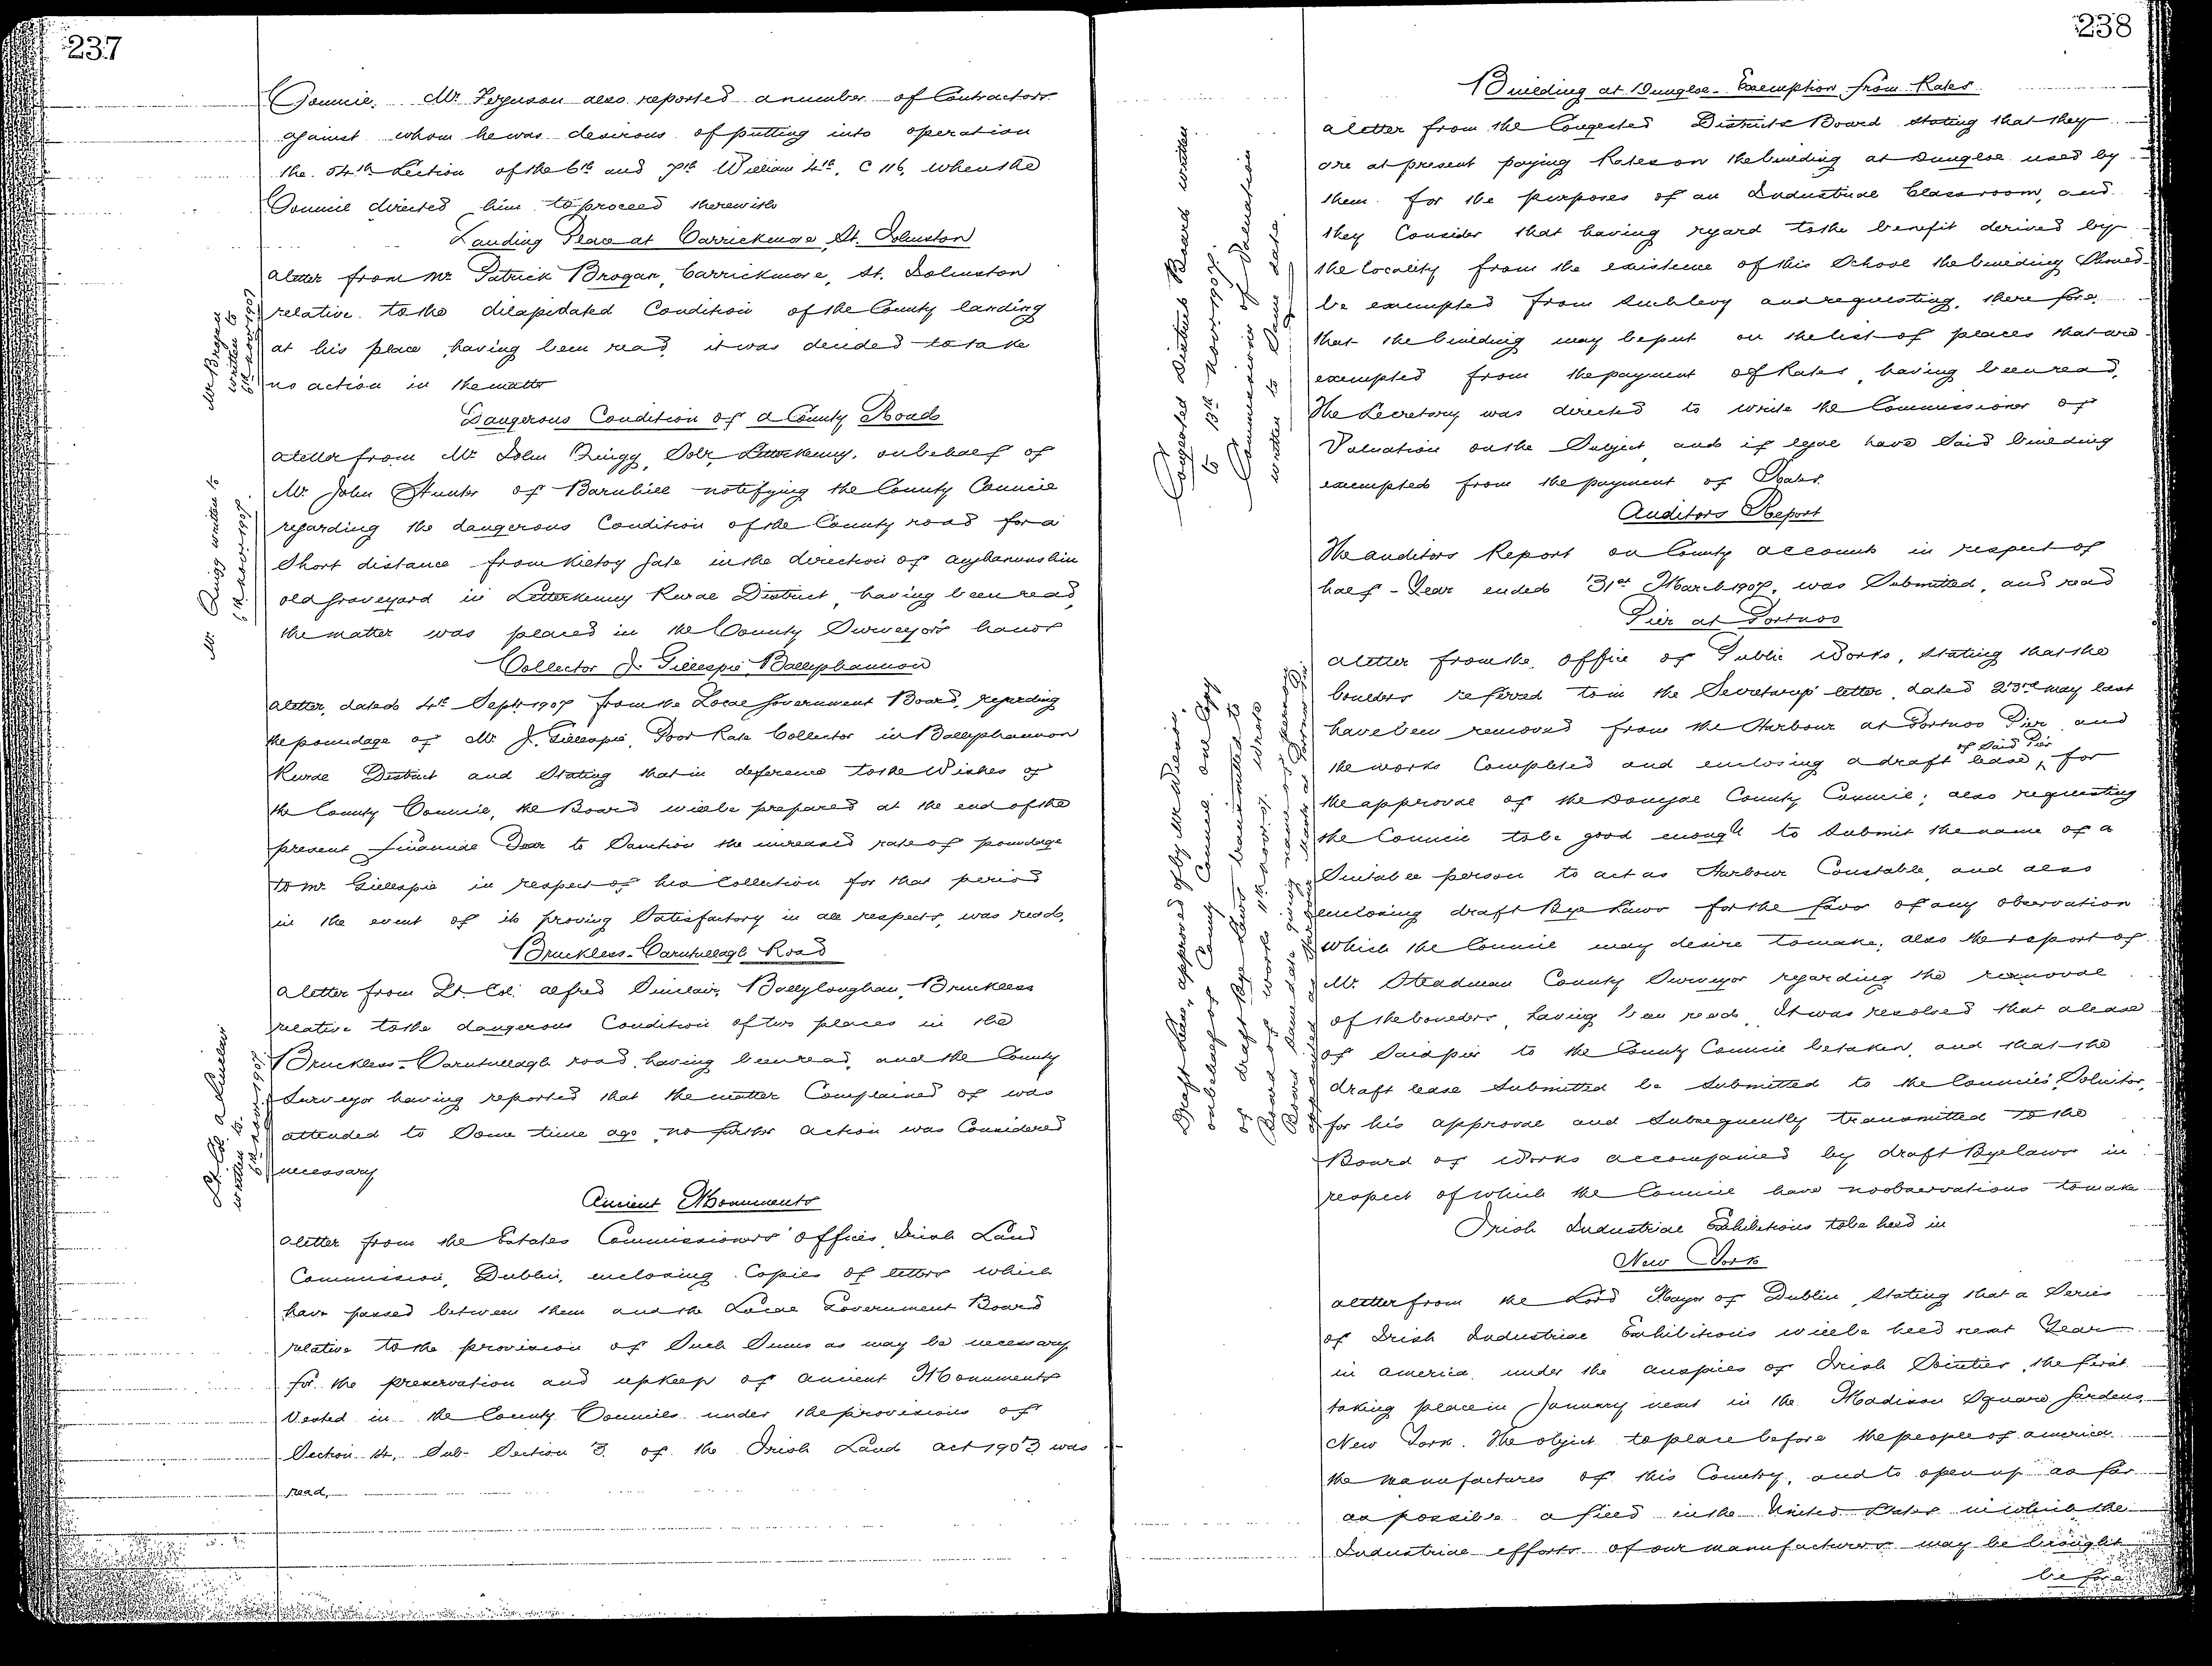 237
Council. Mr Ferguson also reported a number of Contractors
against whom he was desirous of putting into operation
the 54th Section of the 6th and 7th William 4th, C 116, when the
Council directed him to proceed therewith
Landing Place at Carrickmore, St. Johnston
a letter from Mr Patrick Brogan, Carrickmore, St. Johnston
relative to the dilapidated Condition of the County landing
at his place, having been read, it was decided to take
no action in the matter
Mr Brogan
written to
6th Novr 1907
Dangerous Condition of a County Road
a letter from Mr John Quigg, Solr, Letterkenny, on behalf of
Mr John Hunter of Barnhill notifying the County Council
regarding the dangerous Condition of the County road for a
Short distance from Kieloy Gate in the direction of
old Graveyard in Letterkenny Rural District, having been read,
the matter was placed in the County Surveyor's hands
Mr Quigg written to
6th Novr 1907.
Collector J. Gillespie, Ballyshannon
a letter, dated 4th Sept 1907 from the Local Government Board, regarding
the poundage of Mr J. Gillespie, Poor Rate Collector in Ballyshannon
Rural District and Stating that in deference to the Wishes of
the County Council, the Board will be prepared at the end of the
present financial Year to Sanction the increased rate of poundage
to Mr Gillespie in respect of his Collection for that period
in the event of its proving Satisfactory in all respects, was read.
Bruckless-Carntullagh Road
a letter from Lt. Col. Alfred Sinclair, Ballyloughan, Bruckless
relative to the dangerous Condition of two places in the
Bruckless-Carntullagh road, having been read, and the County
Surveyor having reported that the matter Complained of was
attended to Some time ago, no further action was Considered
necessary
Lt. Col. A Sinclair
written to
6th Novr 1907.
Ancient Monuments
a letter from the Estates Commissioners' Offices, Irish Land
Commission, Dublin, enclosing Copies of letters which
have passed between them and the Local Government Board
relative to the provision of Such Sums as may be necessary
for the preservation and upkeep of ancient Monuments
Vested in the County Councils under the provisions of
Section 14, Sub-Section 3 of the Irish Land Act 1903 was
read.
238
Building at Dungloe - Exemption from Rates
a letter from the Congested Districts Board stating that they
are at present paying Rates on the building at Dungloe used by
them for the purposes of an Industrial Classroom, and
they Consider that having regard to the benefit derived by
the locality from the existence of this School the building Should
be exempted from such levy and requesting, therefore,
that the building may be put on the list of places that are
exempted from the payment of Rates, having been read,
The Secretary was directed to write the Commissioner of
Valuation on the Subject, and if legal have Said building
exempted from the payment of Rates.
Congested Districts Board written
to 13th Novr 1907.
Commissioner of Valuation
written to Same date.
Auditors Report
The auditors Report on County accounts in respect of
half-Year ended 31st March 1907, was Submitted, and read
Pier at Portnoo
a letter from the Office of Public Works, stating that the
boulders referred to in the Secretary's letter, dated 23rd May last
have been removed from the Harbour at Portnoo Pier, and
the works Completed and enclosing a draft lease of Said Pier, for
the approval of the Donegal County Council; also requesting
the Council to be good enough to Submit the name of a
Suitable person to act as Harbour Constable, and also
enclosing draft Bye Laws for the favor of any observation
which the Council may desire to make, also the report of
Mr Steadman County Surveyor regarding the removal
of the boulders, having been read, It was resolved that a lease
of Said pier to the County Council be taken, and that the
draft lease Submitted be Submitted to the Council's Solicitor,
for his approval and Subsequently transmitted to the
Board of Works accompanied by draft Bye laws in
respect of which the Council have no observations to make
Draft Lease approved of by Mr
on behalf of County Council. one Copy
of draft Bye Laws transmitted to
Board of Works 11th Novr 07.
Irish Industrial Exhibitions to be held in
New York
a letter from the Lord Mayor of Dublin, Stating that a Series
of Irish Industrial Exhibitions will be held next Year
in America, under the auspices of Irish Societies, the first
taking place in January next in the Madison Square Gardens,
New York. The object to place before the people of America
the manufactures of this Country, and to open up as far
as possible a field in the United States in which the
Industrial efforts of our manufacturers may be brought
before